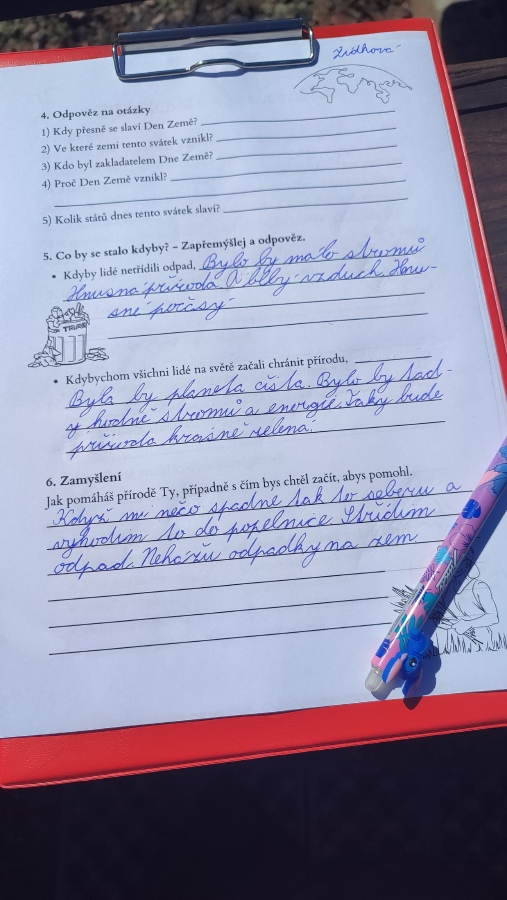 Židková
4. Odpověz na otázky
1) Kdy přesně se slaví Den Země?
2) Ve které zemi tento svátek vznikl?
3) Kdo byl zakladatelem Dne Země?
4) Proč Den Země vznikl?
5) Kolik států dnes tento svátek slaví?
5. Co by se stalo kdyby? – Zapřemýšlej a odpověz.
• Kdyby lidé netřídili odpad, Bylo by málo stromů
Hnusná příroda A blbý vzduch. Hnu-
sné počásý
TRASH
• Kdybychom všichni lidé na světě začali chránit přírodu,
Byla by planeta čistá. Bylo by tad-
y hodně stromů a energie. Taky bude
příroda krásně zelená.
6. Zamyšlení
Jak pomáháš přírodě Ty, případně s čím bys chtěl začít, abys pomohl.
Když mi něco spadne tak to seberu a
vyhodím to do popelnice. Střídím
odpad. Neházu odpadky na zem